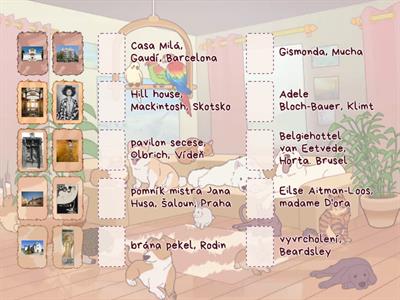 Casa Milá,
Gaudí, Barcelona
Gismonda, Mucha
Hill house,
Mackintosh, Skotsko
Adele
Bloch-Bauer, Klimt
pavilon secese,
Olbrich, Vídeň
Belgiehottel
van Eetvede,
Horta Brusel
pomník mistra Jana
Husa, Šaloun, Praha
Eilse Aitman-Loos,
madame D'ora
brána pekel, Rodin
vyvrcholení,
Beardsley